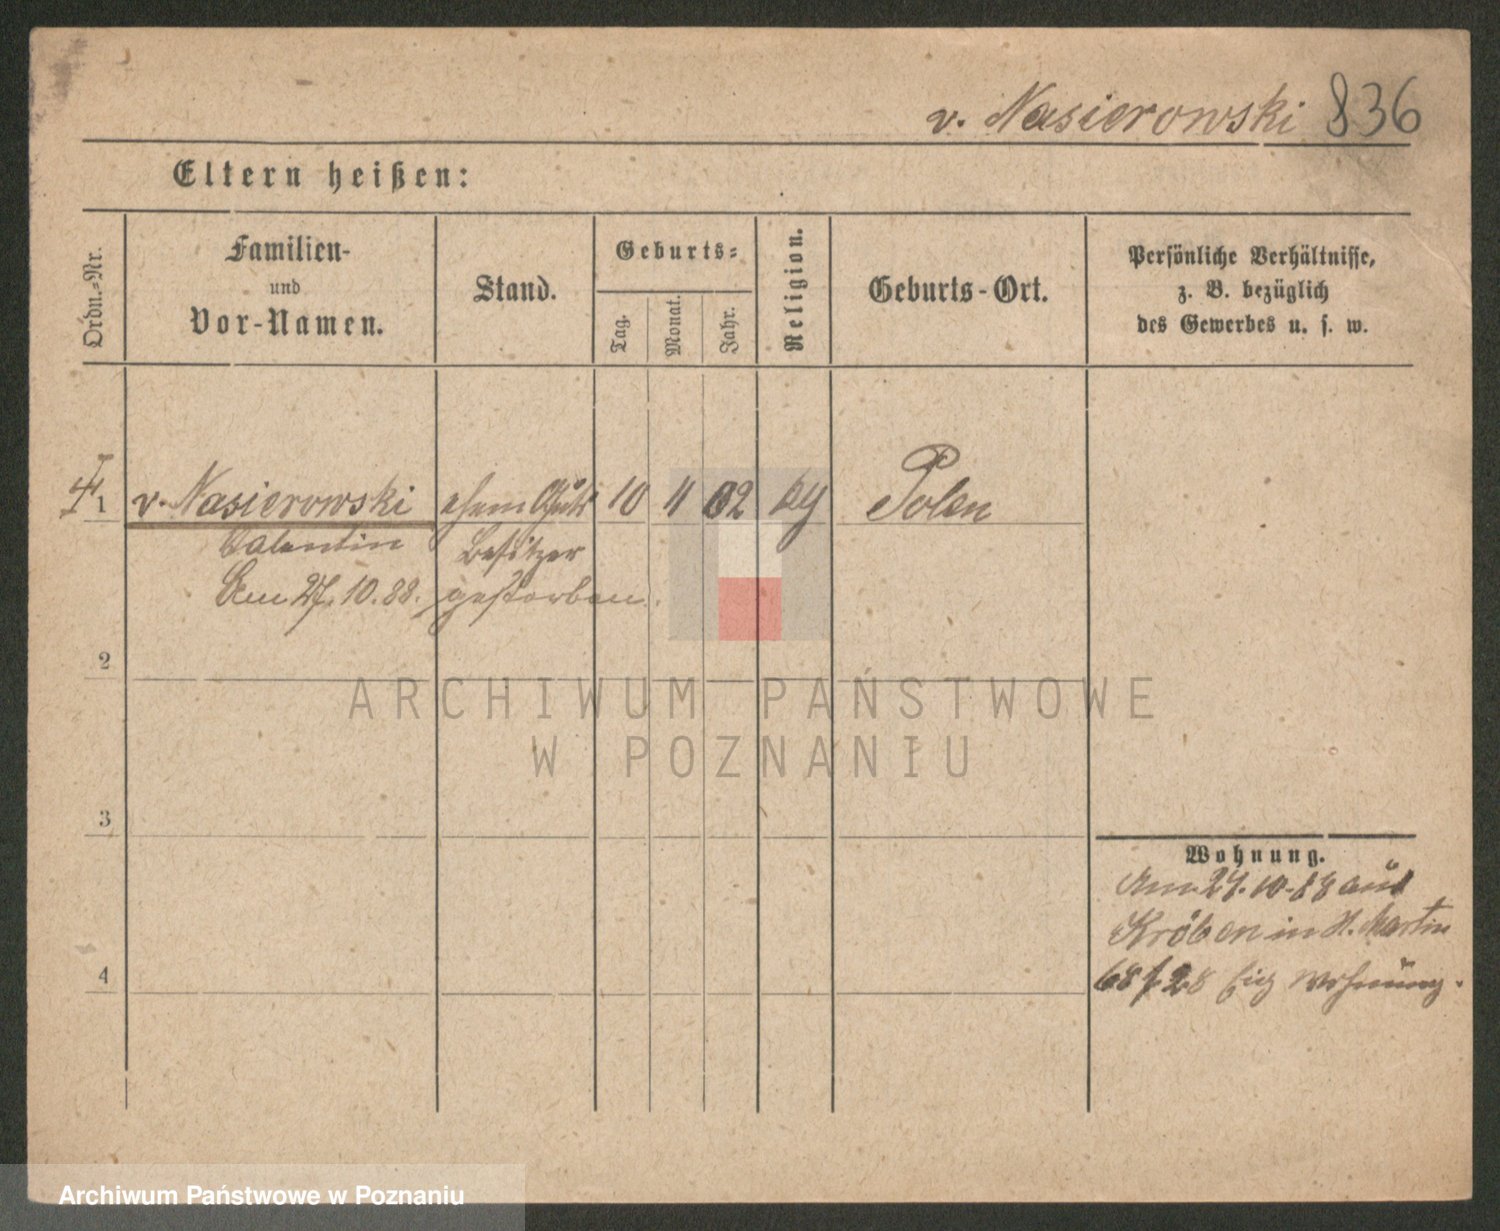 v. Nasierowski 836
Eltern heißen:
Ordn.-Nr.
Familien-
und
Vor-Namen.
Stand.
Geburts-
Tag.
Monat.
Jahr.
Religion.
Geburts-Ort.
Persönliche Verhältnisse,
z. B. bezüglich
des Gewerbes u. s. w.
1 v. Nasierowski ehem Guts 10 11 02 Polen
Valentin Besitzer
Am 27.10.88. gestorben.
2
3
4
Wohnung.
Am 27.10.88 aus
Kröben in St. Martin
68 Wohnung.
ARCHIWUM PAŃSTWOWE
W POZNANIU
Archiwum Państwowe w Poznaniu